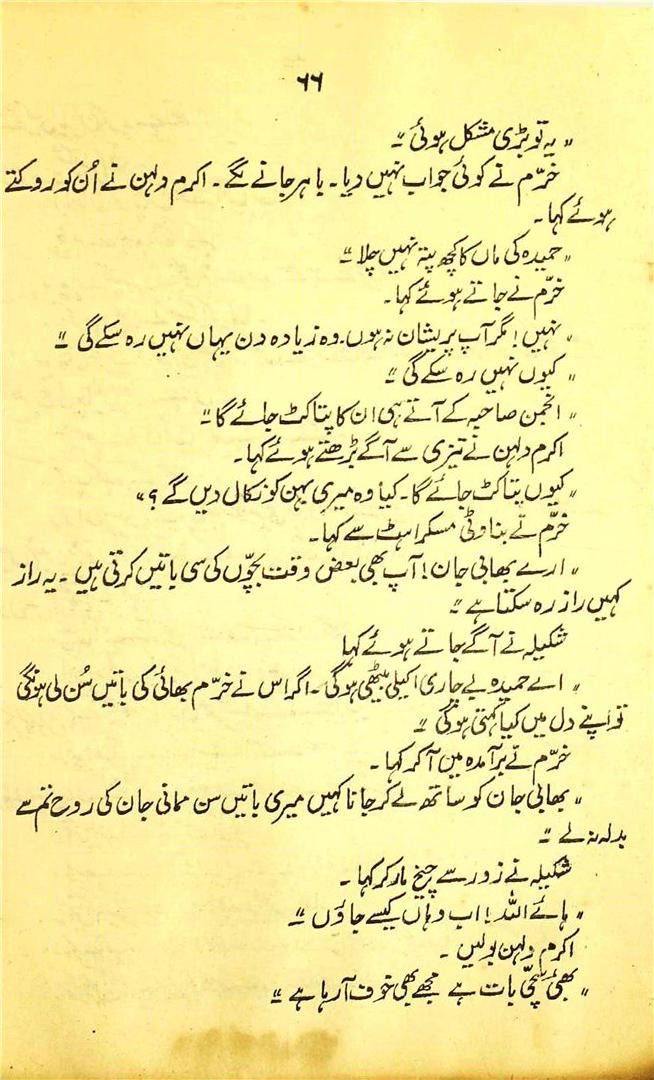 ۶۶
" یہ تو بڑی مشکل ہوئی "
خرّم نے کوئی جواب نہیں دیا۔ باہر جانے لگے۔ اکرم دلہن نے اُن کو روکتے
ہوئے کہا۔
" حمیدہ کی ماں کا کچھ پتہ نہیں چلا "
خرّم نے جاتے ہوئے کہا۔
" نہیں! مگر آپ پریشان نہ ہوں۔ وہ زیادہ دن یہاں نہیں رہ سکے گی "
" کیوں نہیں رہ سکے گی "
" انجمن صاحبہ کے آتے ہی ان کا پتا کٹ جائے گا "
اکرم دلہن نے تیزی سے آگے بڑھتے ہوئے کہا۔
" کیوں پتا کٹ جائے گا۔ کیا وہ میری بہن کو نکال دیں گے ؟ "
خرّم نے بناوٹی مسکراہٹ سے کہا۔
" ارے بھابی جان! آپ بھی بعض وقت بچّوں کی سی باتیں کرتی ہیں ۔ یہ راز
کہیں راز رہ سکتا ہے "
شکیلہ نے آگے جاتے ہوئے کہا
" اے حمیدہ بے چاری اکیلی بیٹھی ہوگی ۔ اگر اس نے خرّم بھائی کی باتیں سُن لی ہونگی
تو اپنے دل میں کیا کہتی ہوگی "
خرّم نے برآمدہ میں آ کر کہا۔
" بھابی جان کو ساتھ لے کر جانا کہیں میری باتیں سن ممانی جان کی روح تم سے
بدلہ نہ لے "
شکیلہ نے زور سے چیخ مار کر کہا ۔
" ہائے اللہ! اب وہاں کیسے جاؤں "
اکرم دلہن بولیں ۔
" بھئی سچّی بات ہے مجھے بھی خوف آ رہا ہے "